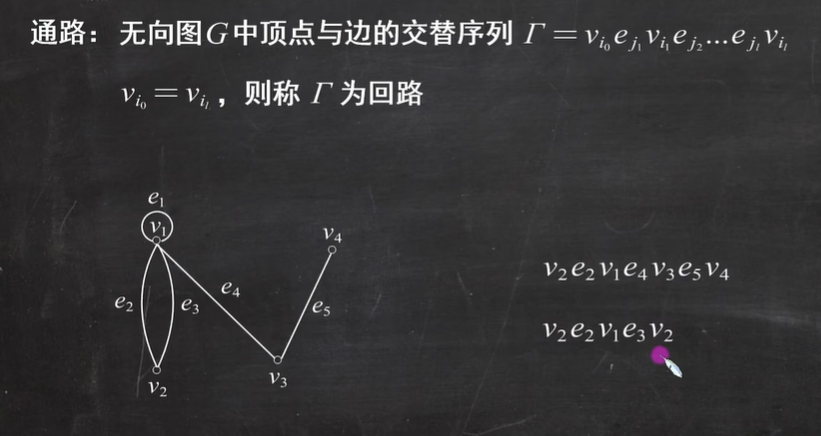 通路：无向图G中顶点与边的交替序列 Γ＝v_{i_0}e_{j_1}v_{i_1}e_{j_2}...e_{j_l}v_{i_l}
v_{i_0}＝v_{i_l}，则称 Γ 为回路
e₁
v₁
v₄
e₄
e₂
e₃
e₅
v₂
v₃
v₂e₂v₁e₄v₃e₅v₄
v₂e₂v₁e₃v₂